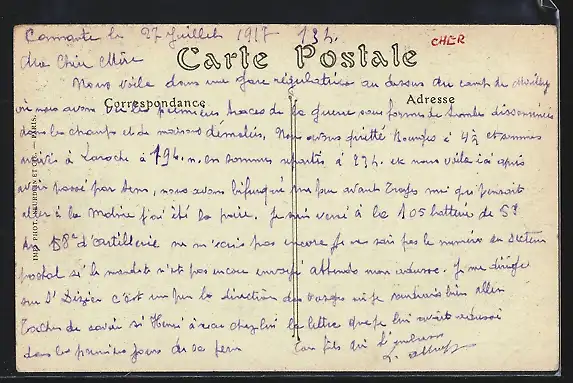 le 27 Juillet 1917 13 h.
CHER
Carte Postale
Ma Chère Mère
Nous voilà dans une gare régulatrice au dessus du camp de Mailly
où nous avons vu les premières traces de la guerre sous forme de tombes
Correspondance
Adresse
dans les champs et de maisons démolies, Nous avons quitté Bourges à 4h et sommes
à Laroche à 19h. n. en sommes repartis à 23h. et nous voilà ici après
avoir passé par Sens, nous avons bifurqué un peu avant Troyes moi qui pensait
aller à la j'ai été la poire. Je suis versé à la 105 batterie de 58
du 58e d'artillerie ne m'écris pas encore je ne sais pas le numéro du secteur
postal si le mandat n'est pas encore envoyé attends mon adresse. Je me dirige
sur St Dizier c'est un peu la direction des Vosges où je voudrais bien aller
Tâches de savoir si Henri a reçu chez lui la lettre que je lui avais
dans les premiers jours de
Ton fils qui t'embrasse
IMP. PHOT. NEURDEIN ET Cie. — PARIS.